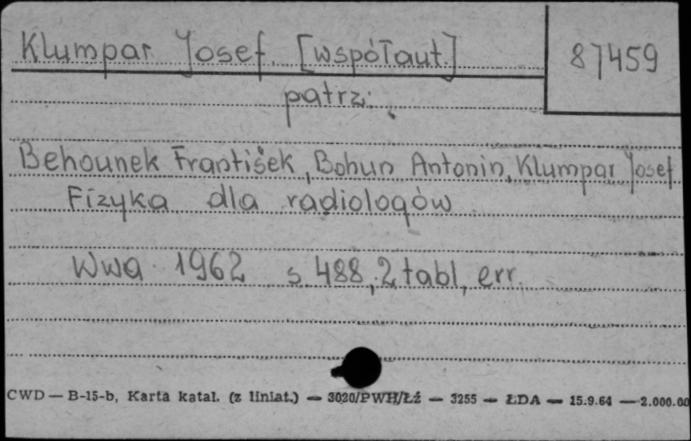 Klumpar Josef. [współaut.]
87459
patrz:
Behounek František, Bohun Antonin, Klumpar Josef
Fizyka dla radiologów
Wwa 1962 s. 488, 2 tabl, err.
CWD — B-15-b, Karta katal. (z liniat.) — 3020/PWH/Łź — 3255 — ŁDA — 15.9.64 — 2.000.00